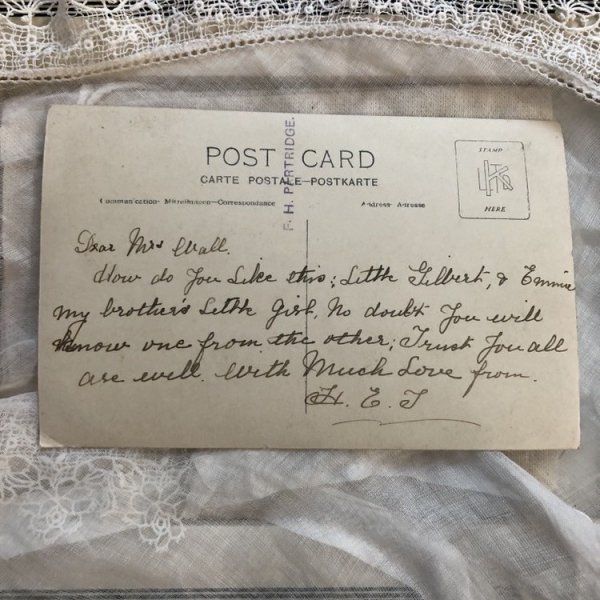 POST CARD
CARTE POSTALE—POSTKARTE
Communication- Mitteilungen—Correspondance
Address- Adresse
F. H. PARTRIDGE.
STAMP
HERE
Dear Mrs Wall.
How do you like this; Little Gilbert, & Emmie
my brother's Little Girl, No doubt you will
know one from the other; Trust you all
are well. With Much Love from.
H. E. T